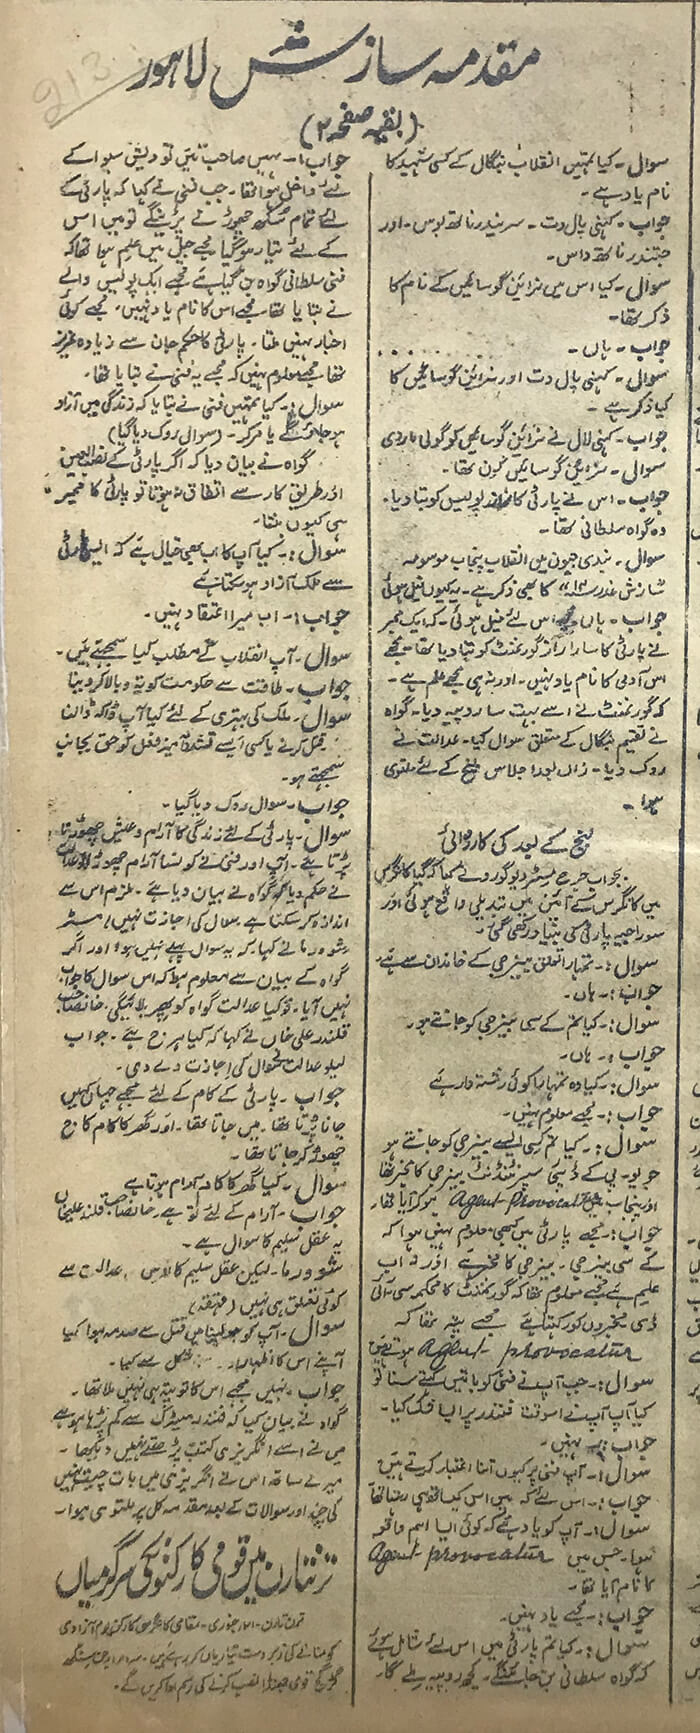 مقدمہ سازش لاہور
(بقیہ صفحہ ۲)
213
سوال۔ کیا تمہیں انقلاب بنگال کے کسی شہید کا
نام یاد ہے۔
جواب۔ کنہی پال دت۔ سریندر ناتھ بوس۔ اور
جتندر ناتھ داس۔
سوال۔ کیا اس میں نرائین گوسائیں کے نام کا
ذکر تھا۔
جواب۔ ہاں۔
سوال۔ کنہی پال دت اور نرائین گوسائیں کا
کیا ذکر ہے۔
جواب۔ کنہی لال نے نرائین گوسائیں کو گولی مار دی
سوال۔ نرائین گوسائیں کون تھا۔
جواب۔ اس نے پارٹی کا پولیس کو بتا دیا۔
وہ گواہ سلطانی تھا۔
سوال۔ بندی جیون میں انقلاب پنجاب موسومہ
سازش غدر کا بھی ذکر ہے۔ یہ کیوں فیل ہوئی
جواب۔ ہاں اس لئے فیل ہوئی۔ کہ ایک ممبر
نے پارٹی کا سارا راز گورنمنٹ کو بتا دیا تھا۔ مجھے
اس آدمی کا نام یاد نہیں۔ اور نہ ہی مجھے علم ہے۔
کہ گورنمنٹ نے اسے بہت سا روپیہ دیا۔ گواہ
نے تقسیم بنگال کے متعلق سوال کیا۔ عدالت نے
روک دیا۔ زاں بعد اجلاس لنچ کے لئے ملتوی
ہوا۔
لنچ کے بعد کی کاروائی
بجواب جرح مسٹر دیوگورو نے کہا کہ گیا کانگرس
میں کانگرس کے آئین میں تبدیلی واقع ہوئی اور
سوراجیہ پارٹی کی بنیاد رکھی گئی۔
سوال:۔ تمہارا تعلق بینرجی کے خاندان سے ہے۔
جواب:۔ ہاں۔
سوال:۔ کیا تم کے سی بینرجی کو جانتے ہو۔
جواب:۔ ہاں۔
سوال:۔ کیا وہ تمہارا کوئی رشتہ دار ہے
جواب:۔ مجھے معلوم نہیں۔
سوال:۔ کیا تم کسی ایسے بینرجی کو جانتے ہو
جو یو۔ پی کے ڈپٹی سپرنٹنڈنٹ بینرجی کا مخبر تھا
اور پنجاب میں Agent Provocateur ہو کر آیا تھا۔
جواب:۔ مجھے پارٹی میں کبھی معلوم نہیں ہوا کہ
کے سی بینرجی۔ بینرجی کا مخبر ہے اور نہ اب
علم ہے مجھے معلوم تھا کہ گورنمنٹ کا محکمہ سی آئی
ڈی مخبروں کو رکھتا ہے مجھے پتہ تھا کہ
Agent provocatur ہوتے ہیں
سوال:۔ جب آپ نے فنی کو باتیں کہتے سنا تو
کیا آپ نے اس وقت قلندر پر ایسا شک کیا۔
جواب:۔ نہیں۔
سوال:۔ آپ فنی پر کیوں اتنا اعتبار کرتے ہیں
جواب:۔ اس لئے کہ میں اس کے ساتھ ہی رہتا تھا
سوال:۔ آپ کو یاد ہے کہ کوئی ایسا اہم واقعہ
ہوا۔ جس میں Agent-provocatur
کا نام آیا تھا۔
جواب:۔ مجھے یاد نہیں۔
سوال:۔ کیا تم پارٹی میں اس لئے شامل ہوئے
کہ گواہ سلطانی بن جائیں گے۔ کچھ روپیہ ملے گا۔
جواب:۔ نہیں صاحب میں تو دیش سیوا کے
لئے داخل ہوا تھا۔ جب فنی نے کہا کہ پارٹی کے
لئے تمام سکھ چھوڑنے پڑینگے تو میں اس
کے لئے تیار ہو گیا مجھے جیل میں علم ہوا تھا کہ
فنی سلطانی گواہ بن گیا ہے مجھے ایک پولیس والے
نے بتایا تھا۔ مجھے اس کا نام یاد نہیں۔ مجھے کوئی
اخبار نہیں ملتا۔ پارٹی کا حکم جان سے زیادہ عزیز
تھا مجھے معلوم نہیں کہ مجھے یہ فنی نے بتایا تھا۔
سوال:۔ کیا تمہیں فنی نے بتایا کہ زندگی میں آزاد
ہو جاؤ گے یا مر کر۔ (سوال روک دیا گیا)
گواہ نے بیان دیا کہ اگر پارٹی کے نصب العین
اور طریق کار سے اتفاق نہ ہوتا تو پارٹی کا ممبر
ہی کیوں بنتا۔
سوال:۔ کیا آپ کا اب بھی خیال ہے کہ ایسی پارٹی
سے ملک آزاد ہو سکتا ہے
جواب:۔ اب میرا اعتقاد نہیں۔
سوال۔ آپ انقلاب کے مطلب کیا سمجھتے ہیں۔
جواب۔ طاقت سے حکومت کو تہ و بالا کر دینا
سوال۔ ملک کی بہتری کے لئے کیا آپ ڈاکہ ڈالنا
قتل کرنے یا کسی ایسے تشدد آمیز فعل کو حق بجانب
سمجھتے ہو۔
جواب۔ سوال روک دیا گیا۔
سوال۔ پارٹی کے لئے زندگی کا آرام و عیش چھوڑنا
پڑتا ہے۔ آپ اور فنی نے کونسا آرام چھوڑا عدالت
نے حکم دیا کہ گواہ نے بیان دیا ہے۔ ملزم اس سے
اندازہ کر سکتا ہے سوال کی اجازت نہیں، مسٹر
شوورما نے کہا کہ یہ سوال پہلے نہیں ہوا اور اگر
گواہ کے بیان سے معلوم ہوا کہ اس سوال کا جواب
نہیں آیا۔ تو کیا عدالت گواہ کو پھر بلائیگی۔ خانصاحب
قلندر علی خاں نے کہا کہ کیا ہرج ہے۔ جواب
لیلو عدالت نے سوال کی اجازت دے دی۔
جواب۔ پارٹی کے کام کے لئے مجھے جہاں کہیں
جانا پڑتا تھا۔ میں جاتا تھا۔ اور گھر کا کام کاج
چھوڑ کر جاتا تھا۔
سوال۔ کیا گھر کا کام آرام ہوتا ہے
جواب۔ آرام کے لئے تو ہے۔ خانصاحب قلندر علیخاں
یہ عقل سلیم کا سوال ہے۔
شوورما۔ لیکن عقل سلیم کا اس عدالت سے
کوئی تعلق ہی نہیں (قہقہہ)
سوال۔ آپ کو جو قتل سے صدمہ ہوا کیا
آپنے اس کا اظہار شکل سے کیا۔
جواب۔ نہیں مجھے اس کا تو پتہ ہی نہیں ملا تھا۔
گواہ نے بیان کیا کہ قلندر میٹرک سے کم پڑھا ہوا ہے
میں نے اسے انگریزی کتب پڑھتے نہیں دیکھا۔
میرے ساتھ اس نے انگریزی میں بات چیت نہیں
کی چند اور سوالات کے بعد مقدمہ کل پر ملتوی ہوا۔
ترنتارن میں قومی کارکنوں کی سرگرمیاں
ترن تارن۔ جنوری۔ مقامی کانگرسی کارکن یوم آزادی
کو منانے کی زبردست تیاریاں کر رہے ہیں۔ سردار سنگھ
قومی جھنڈا نصب کرنے کی رسم ادا کریں گے۔